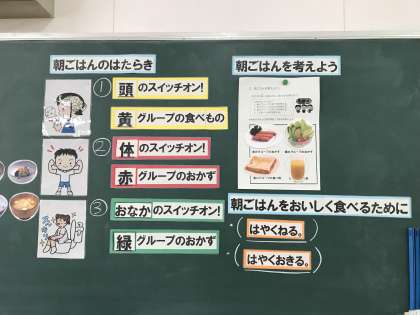 朝ごはんのはたらき
① 頭のスイッチオン!
黄グループの食べもの
② 体のスイッチオン!
赤グループのおかず
③ おなかのスイッチオン!
緑グループのおかず
朝ごはんを考えよう
朝ごはんをおいしく食べるために
(はやくねる。)
(はやくおきる。)